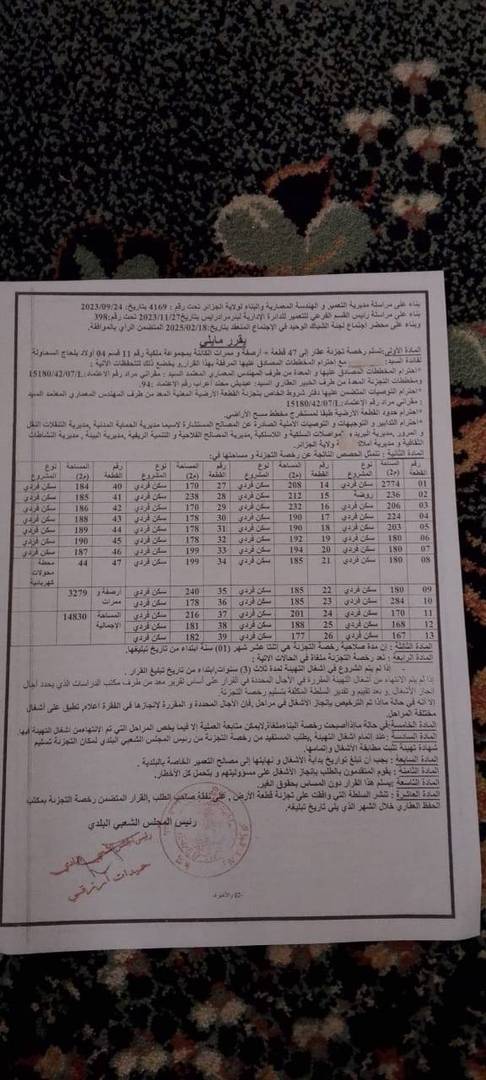 بناء على مراسلة مديرية التعمير و الهندسة المعمارية والبناء لولاية الجزائر تحت رقم : 4169 بتاريخ: 2023/09/24.
بناء على مراسلة رئيس القسم الفرعي للتعمير للدائرة الإدارية لبئرمرادرايس بتاريخ2023/11/27 تحت رقم:398
وبناء على محضر اجتماع لجنة الشباك الوحيد في الاجتماع المنعقد بتاريخ:2025/02/18 المتضمن الرأي بالموافقة.
يقرر مايلي
المادة الأولى:تسلم رخصة تجزئة عقار إلى 47 قطعة + أرصفة و ممرات الكائنة بمجموعة ملكية رقم 11 قسم 04 أولاد بلحاج السحاولة
لفائدة السيد: مع احترام المخططات المصادق عليها المرفقة بهذا القرار،و يخضع ذلك للتحفظات الآتية :
*احترام المخططات المصادق عليها و المعدة من طرف المهندس المعماري المعتمد السيد : مقراني مراد رقم الاعتماد:15180/42/07/L
ومخططات التجزئة المعدة من طرف الخبير العقاري السيد: محند أعراب رقم الاعتماد :94.
*احترام التوصيات المتضمن عليها دفتر شروط الخاص بتجزئة القطعة الأرضية المعنية المعد من طرف المهندس المعماري المعتمد السيد
: مقراني مراد رقم الاعتماد :15180/42/07/L
*احترام حدود القطعة الأرضية طبقا لمستخرج مخطط مسح الأراضي.
*احترام التدابير و التوجيهات و التوصيات الأمنية الصادرة عن المصالح المستشارة لاسيما مديرية الحماية المدنية، مديرية التنقلات النقل
و المرور ,مديرية البريد و المواصلات السلكية و اللاسلكية, مديرية المصالح الفلاحية و التنمية الريفية, مديرية البيئة , مديرية النشاطات
الثقافية و مديرية أملاك ولاية الجزائر.
المادة الثانية : تتمثل الحصص الناتجة عن رخصة التجزئة و مساحتها في:
رقم القطعة المساحة (م2) نوع المشروع رقم القطعة المساحة (م2) نوع المشروع رقم القطعة المساحة (م2) نوع المشروع رقم القطعة المساحة (م2) نوع المشروع
01 2774 سكن فردي 14 208 سكن فردي 27 170 سكن فردي 40 184 سكن فردي
02 236 روضة 15 212 سكن فردي 28 238 سكن فردي 41 185 سكن فردي
03 206 سكن فردي 16 232 سكن فردي 29 170 سكن فردي 42 186 سكن فردي
04 224 سكن فردي 17 190 سكن فردي 30 178 سكن فردي 43 188 سكن فردي
05 203 سكن فردي 18 190 سكن فردي 31 178 سكن فردي 44 189 سكن فردي
06 180 سكن فردي 19 192 سكن فردي 32 178 سكن فردي 45 190 سكن فردي
07 180 سكن فردي 20 194 سكن فردي 33 199 سكن فردي 46 187 سكن فردي
08 180 سكن فردي 21 185 سكن فردي 34 199 سكن فردي 47 44 محطة محولات كهربائية
09 180 سكن فردي 22 185 سكن فردي 35 240 سكن فردي أرصفة و ممرات 3279
10 284 سكن فردي 23 185 سكن فردي 36 178 سكن فردي
11 170 سكن فردي 24 201 سكن فردي 37 216 سكن فردي المساحة الإجمالية 14830
12 168 سكن فردي 25 188 سكن فردي 38 181 سكن فردي
13 167 سكن فردي 26 177 سكن فردي 39 182 سكن فردي
المادة الثالثة : إن مدة صلاحية رخصة التجزئة هي إثنتا عشر شهر (01) سنة ابتداء من تاريخ تبليغها.
المادة الرابعة : تعد رخصة التجزئة ملغاة في الحالات الآتية :
- إذا لم يتم الشروع في أشغال التهيئة لمدة ثلاث (3) سنوات،ابتداء من تاريخ تبليغ القرار .
- إذا لم يتم الانتهاء من أشغال التهيئة المقررة في الآجال المحددة في القرار على أساس تقرير معد من طرف مكتب الدراسات الذي يحدد آجال
إنجاز الأشغال ,و بعد تقييم و تقدير السلطة المكلفة بتسليم رخصة التجزئة.
إلا أنه في حالة ماإذا تم الترخيص بإنجاز الأشغال في مراحل، فإن الآجال المحددة و المقررة لإنجازها في الفقرة أعلاه تطبق على أشغال
مختلفة المراحل.
المادة الخامسة:في حالة ماإذاأصبحت رخصة البناءملغاة,لايمكن متابعة العملية إلا فيما يخص المراحل التي تم الانتهاءمن أشغال التهيئة فيها.
المادة السادسة :عند إتمام أشغال التهيئة ,يطلب المستفيد من رخصة التجزئة من رئيس المجلس الشعبي البلدي لمكان التجزئة تسليم
شهادة تهيئة تثبت مطابقة الأشغال وإتمامها.
المادة السابعة : يجب أن تبلغ تواريخ بداية الأشغال و نهايتها إلى مصالح التعمير الخاصة بالبلدية .
المادة الثامنة : يقوم المتقدمون بالطلب بإنجاز الأشغال على مسؤوليتهم و بتحمل كل الأخطار.
المادة التاسعة :يسلم هذا القرار دون المساس بحقوق الغير.
المادة العاشرة : تنشر السلطة التي وافقت على تجزئة قطعة الأرض , على نفقة صاحب الطلب ,القرار المتضمن رخصة التجزئة بمكتب
الحفظ العقاري خلال الشهر الذي يلي تاريخ تبليغه.
رئيس المجلس الشعبي البلدي
رئيس المجلس الشعبي البلدي